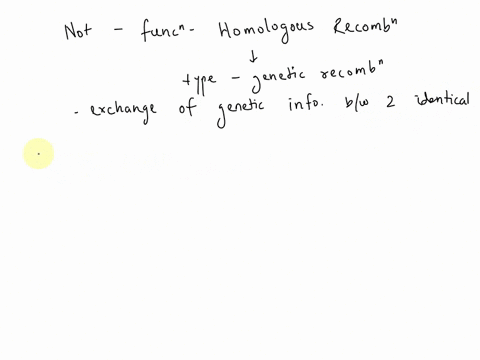 Not - funcⁿ - Homologous Recombⁿ
↓
type - genetic recombⁿ
- exchange of genetic info. b/w 2 identical